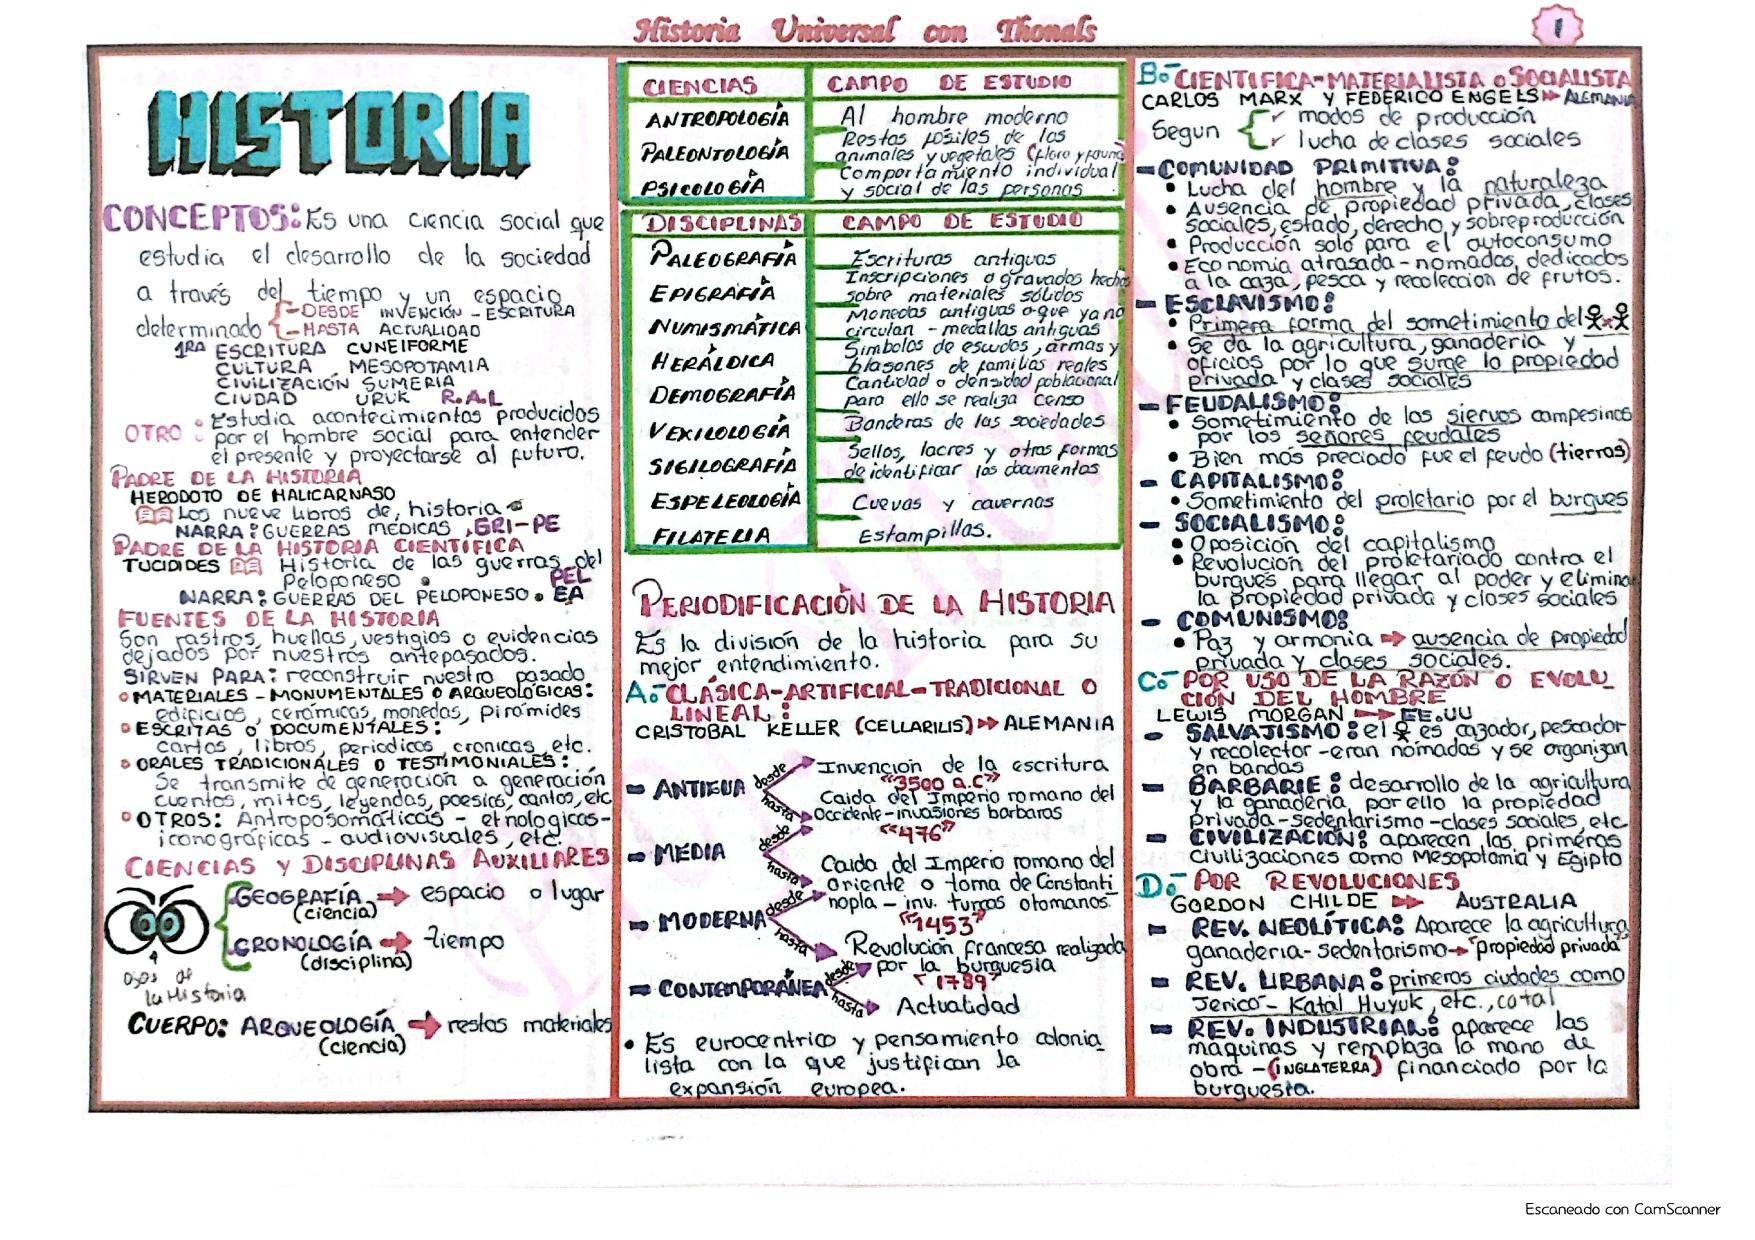 Historia Universal con Thonals
1
HISTORIA
CONCEPTOS: Es una ciencia social que
estudia el desarrollo de la sociedad
a través del tiempo y un espacio
determinado { - DESDE INVENCIÓN - ESCRITURA
- HASTA ACTUALIDAD
1RA ESCRITURA CUNEIFORME
CULTURA MESOPOTAMIA
CIVILIZACIÓN SUMERIA
CIUDAD URUK R.A.L
OTRO: Estudia acontecimientos producidos
por el hombre social para entender
el presente y proyectarse al futuro.
PADRE DE LA HISTORIA
HERODOTO DE HALICARNASO
Los nueve libros de historia
NARRA: GUERRAS MEDICAS, GRI-PE
PADRE DE LA HISTORIA CIENTIFICA
TUCIDIDES Historia de las guerras del
Peloponeso. PEL
NARRA: GUERRAS DEL PELOPONESO. EA
FUENTES DE LA HISTORIA
Son rastros, huellas, vestigios o evidencias
dejados por nuestros antepasados.
SIRVEN PARA: reconstruir nuestro pasado
• MATERIALES - MONUMENTALES O ARQUEOLÓGICAS:
edificios, cerámicas, monedas, pirámides
• ESCRITAS O DOCUMENTALES:
cartas, libros, periodicos, cronicas, etc.
• ORALES TRADICIONALES O TESTIMONIALES:
Se transmite de generación a generación
cuentos, mitos, leyendas, poesías, cantos, etc
• OTROS: Antroposomáticas - etnologicas-
iconográficas - audiovisuales, etc.
CIENCIAS Y DISCIPLINAS AUXILIARES
GEOGRAFÍA → espacio o lugar
(ciencia)
CRONOLOGÍA → tiempo
(disciplina)
ojos de
la Historia
CUERPO: ARQUEOLOGÍA → restos materiales
(ciencia)
CIENCIAS CAMPO DE ESTUDIO
ANTROPOLOGÍA Al hombre moderno
PALEONTOLOGÍA Restos fósiles de los
animales y vegetales (flora y fauna)
PSICOLOGÍA Comportamiento individual
y social de las personas
DISCIPLINAS CAMPO DE ESTUDIO
PALEOGRAFÍA Escrituras antiguas
EPIGRAFÍA Inscripciones o gravados hechos
sobre materiales sólidos
NUMISMÁTICA Monedas antiguas o que ya no
circulan - medallas antiguas
HERÁLDICA Simbolos de escudos, armas y
blasones de familias reales
DEMOGRAFÍA Cantidad o densidad poblacional
para ello se realiza censo
VEXILOLOGÍA Banderas de las sociedades
SIGILOGRAFÍA Sellos, lacres y otras formas
de identificar los documentos
ESPELEOLOGÍA Cuevas y cavernas
FILATELIA Estampillas.
PERIODIFICACIÓN DE LA HISTORIA
Es la división de la historia para su
mejor entendimiento.
A.- CLÁSICA-ARTIFICIAL-TRADICIONAL O
LINEAL:
CRISTOBAL KELLER (CELLARILIS) ALEMANIA
- ANTIGUA desde Invención de la escritura
"3500 a.C"
hasta Caida del Imperio romano del
Occidente-invasiones barbaras
"476"
- MEDIA desde
hasta Caida del Imperio romano del
Oriente o toma de Constanti
nopla - inv. turcos otomanos.
- MODERNA desde "1453"
hasta Revolución francesa realizada
por la burguesia
- CONTEMPORÁNEA desde "1789"
hasta Actualidad
• Es eurocentrico y pensamiento colonia_
lista con la que justifican la
expansión europea.
B.- CIENTIFICA-MATERIALISTA o SOCIALISTA
CARLOS MARX Y FEDERICO ENGELS ALEMANIA
Segun { ✓ modos de producción
✓ lucha de clases sociales
- COMUNIDAD PRIMITIVA:
• Lucha del hombre y la naturaleza
• Ausencia de propiedad privada, clases
sociales, estado, derecho y sobreproducción
• Producción solo para el autoconsumo
• Economia atrasada - nomadas, dedicados
a la caza, pesca y recolección de frutos.
- ESCLAVISMO:
• Primera forma del sometimiento del
• Se da la agricultura, ganadería y
oficios por lo que surge la propiedad
privada y clases sociales
- FEUDALISMO:
• Sometimiento de los siervos campesinos
por los señores feudales
• Bien más preciado fue el feudo (tierras)
- CAPITALISMO:
• Sometimiento del proletario por el burgues
- SOCIALISMO:
• Oposición del capitalismo
• Revolucion del proletariado contra el
burgues para llegar al poder y elimina
la propiedad privada y clases sociales
- COMUNISMO:
• Paz y armonia → ausencia de propiedad
privada y clases sociales.
C.- POR USO DE LA RAZÓN O EVOLU_
CIÓN DEL HOMBRE
LEWIS MORGAN → EE.UU
- SALVAJISMO: el es cazador, pescador
y recolector - eran nómadas y se organizan
en bandas
- BARBARIE: desarrollo de la agricultura
y la ganadería, por ello la propiedad
privada-sedentarismo-clases sociales, etc
- CIVILIZACIÓN: aparecen las primeras
civilizaciones como Mesopotamia y Egipto
D.- POR REVOLUCIONES
GORDON CHILDE AUSTRALIA
- REV. NEOLÍTICA: Aparece la agricultura
ganaderia- sedentarismo → "propiedad privada"
- REV. URBANA: primeros ciudades como
Jerico - Katal Huyuk, etc., catal
- REV. INDUSTRIAL: aparece las
maquinas y remplaza la mano de
obra - (INGLATERRA) financiado por la
burguesia.
Escaneado con CamScanner